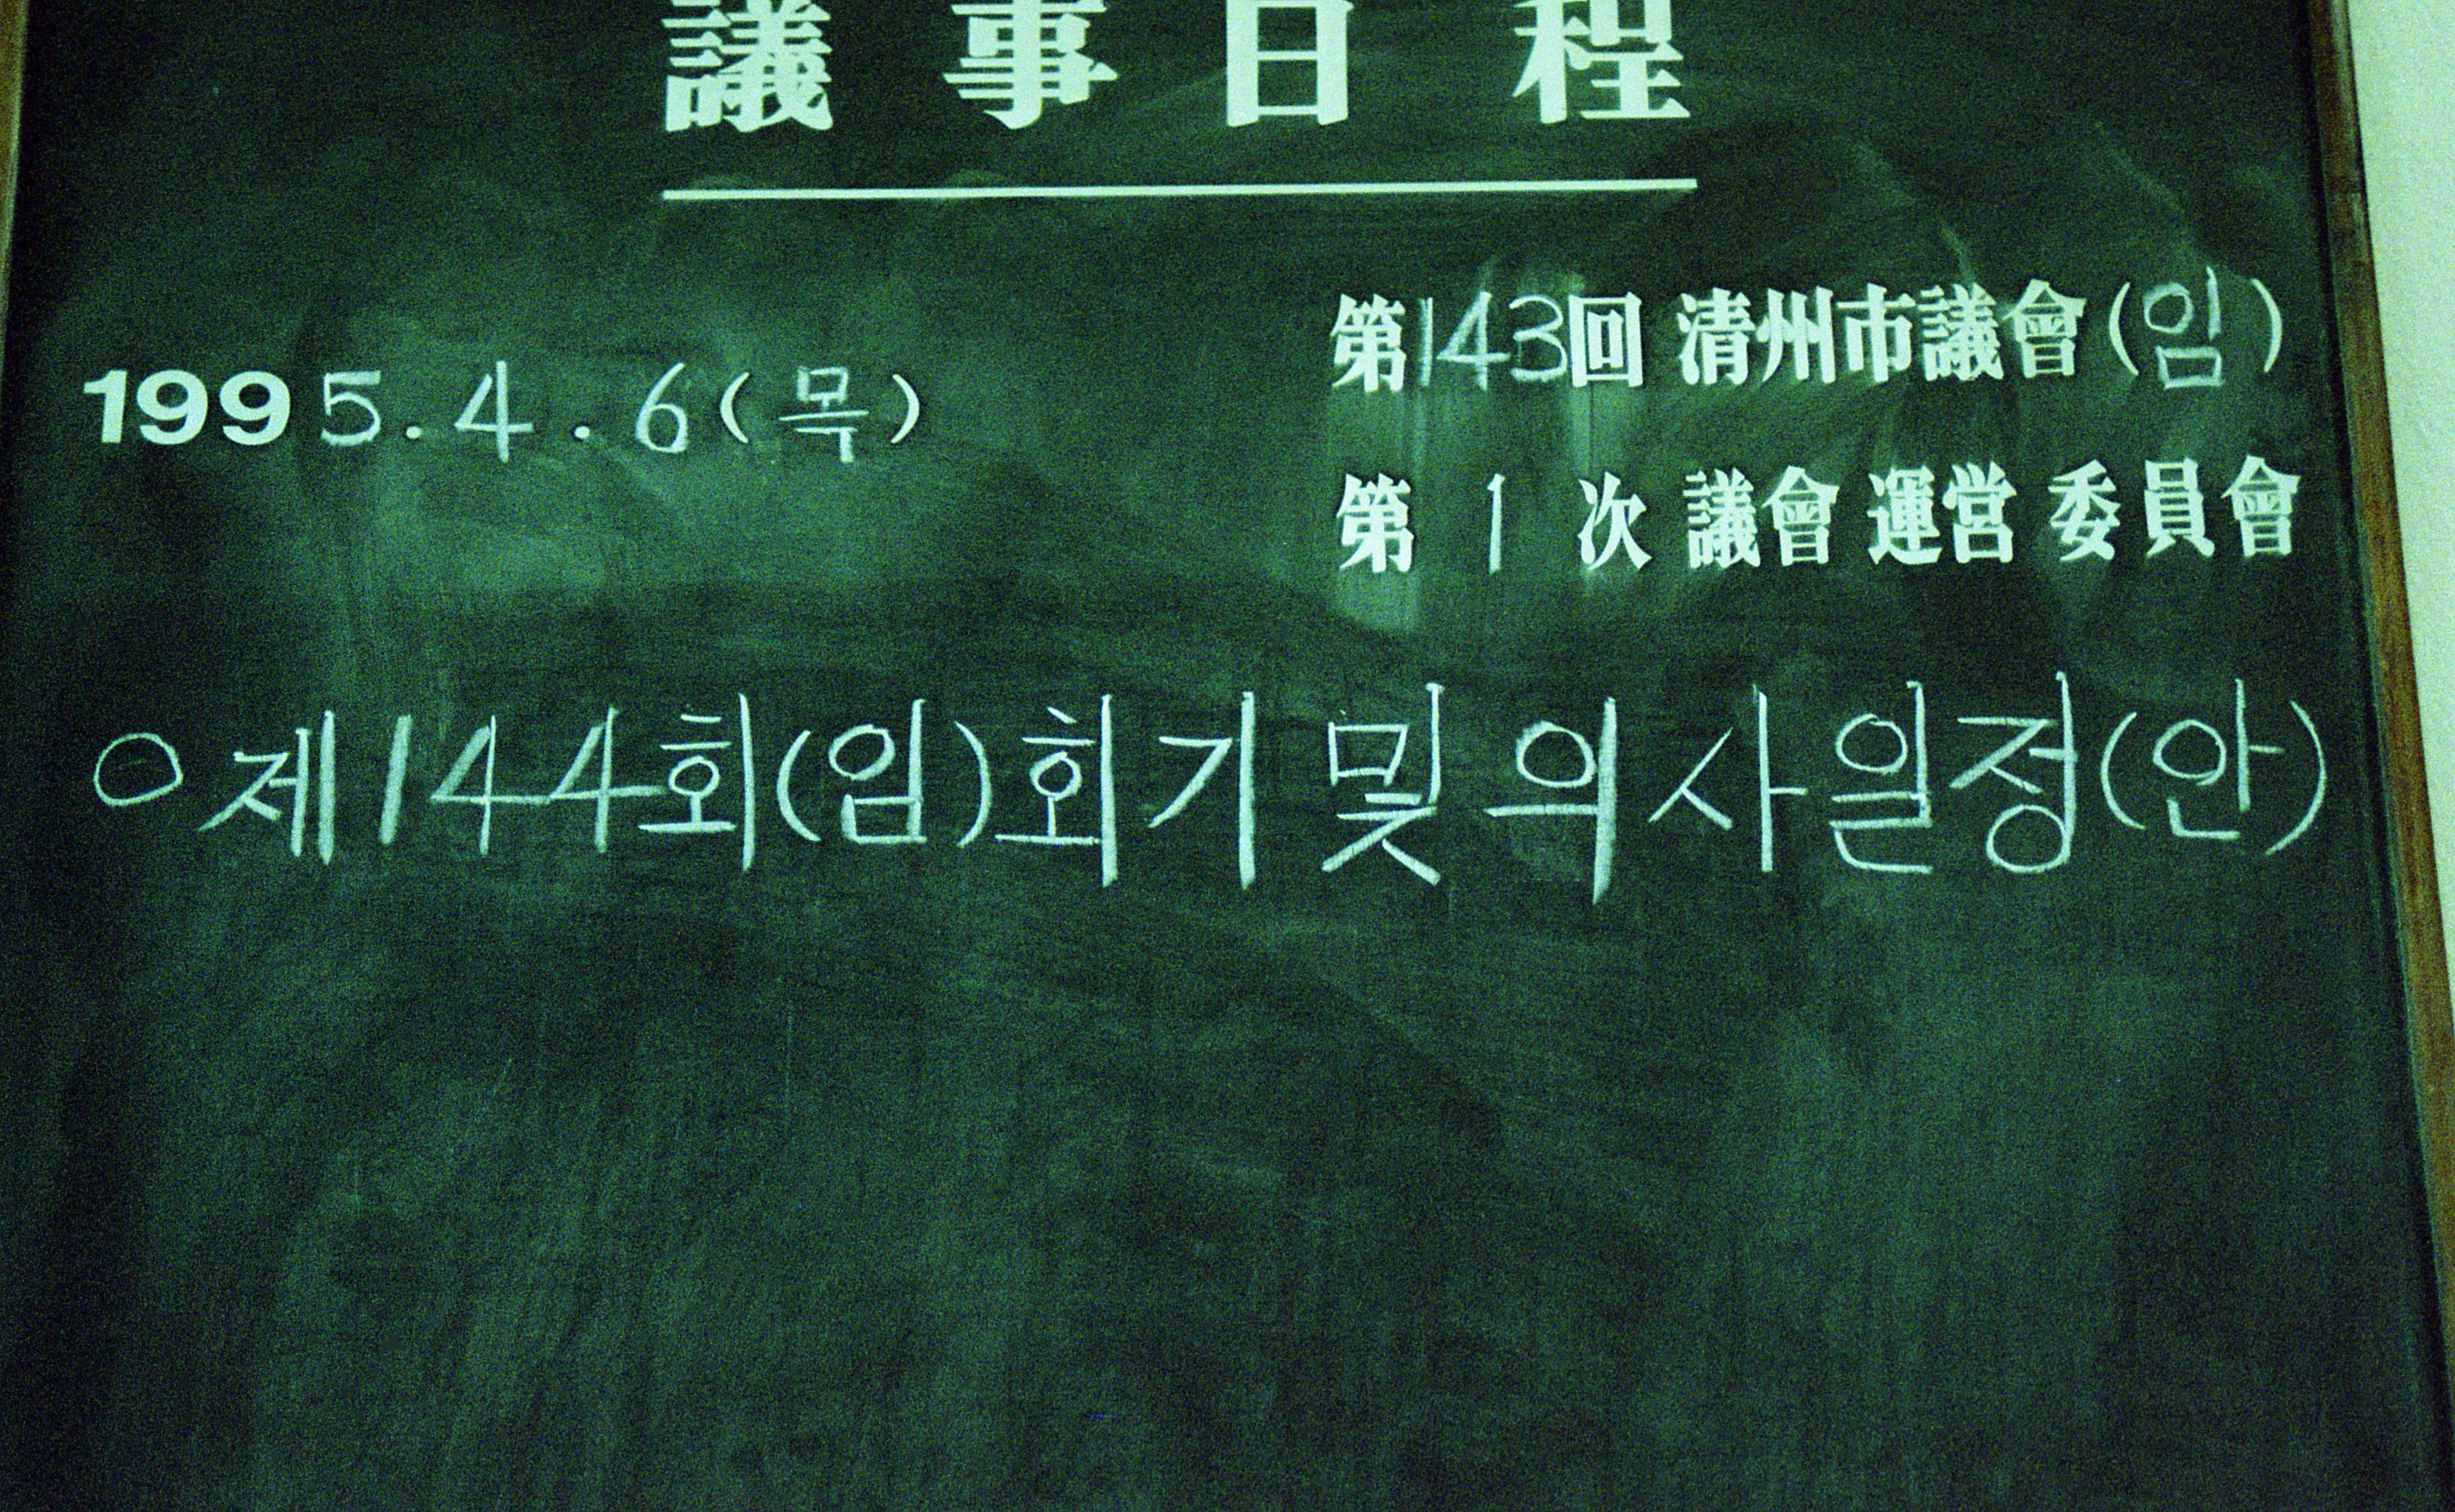 議事日程
第143回 清州市議會(임)
1995.4.6(목)
第 1 次 議會 運営 委員會
○제144회(임)회기 및 의사일정(안)